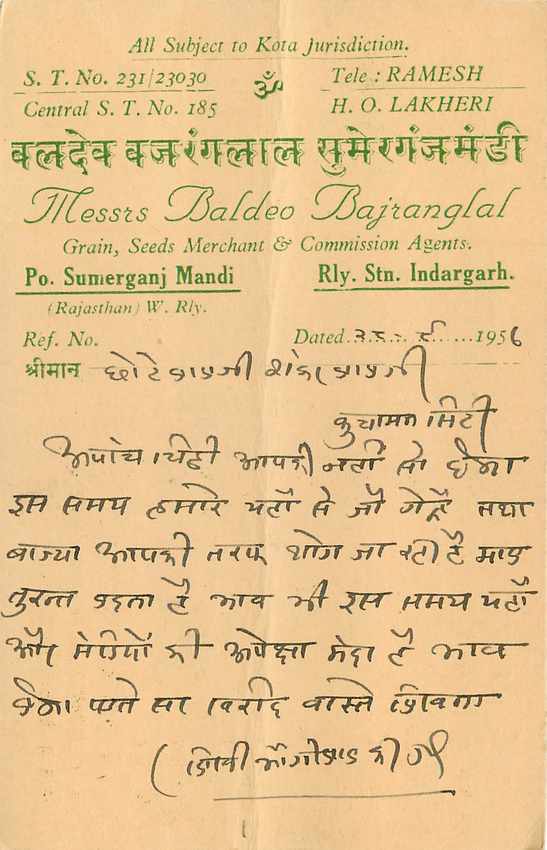 All Subject to Kota Jurisdiction.
S. T. No. 231/23030 ॐ Tele : RAMESH
Central S. T. No. 185 H. O. LAKHERI
बलदेव बजरंगलाल सुमेरगंजमंडी
Messrs Baldeo Bajranglal
Grain, Seeds Merchant & Commission Agents.
Po. Sumerganj Mandi Rly. Stn. Indargarh.
(Rajasthan) W. Rly.
Ref. No. Dated 1956
श्रीमान छोटे लालजी शंकर लालजी
कुचामन सिटी
चिठी आपकी नहीं सो देना
इस समय हमारे यहाँ से जौ गेहूँ तथा
आपकी तरफ थोग जा रही है माल
तुरन्त है भाव भी इस समय यहाँ
और मंडियों की अपेक्षा मंदा है भाव
खरीद वास्ते लिखना